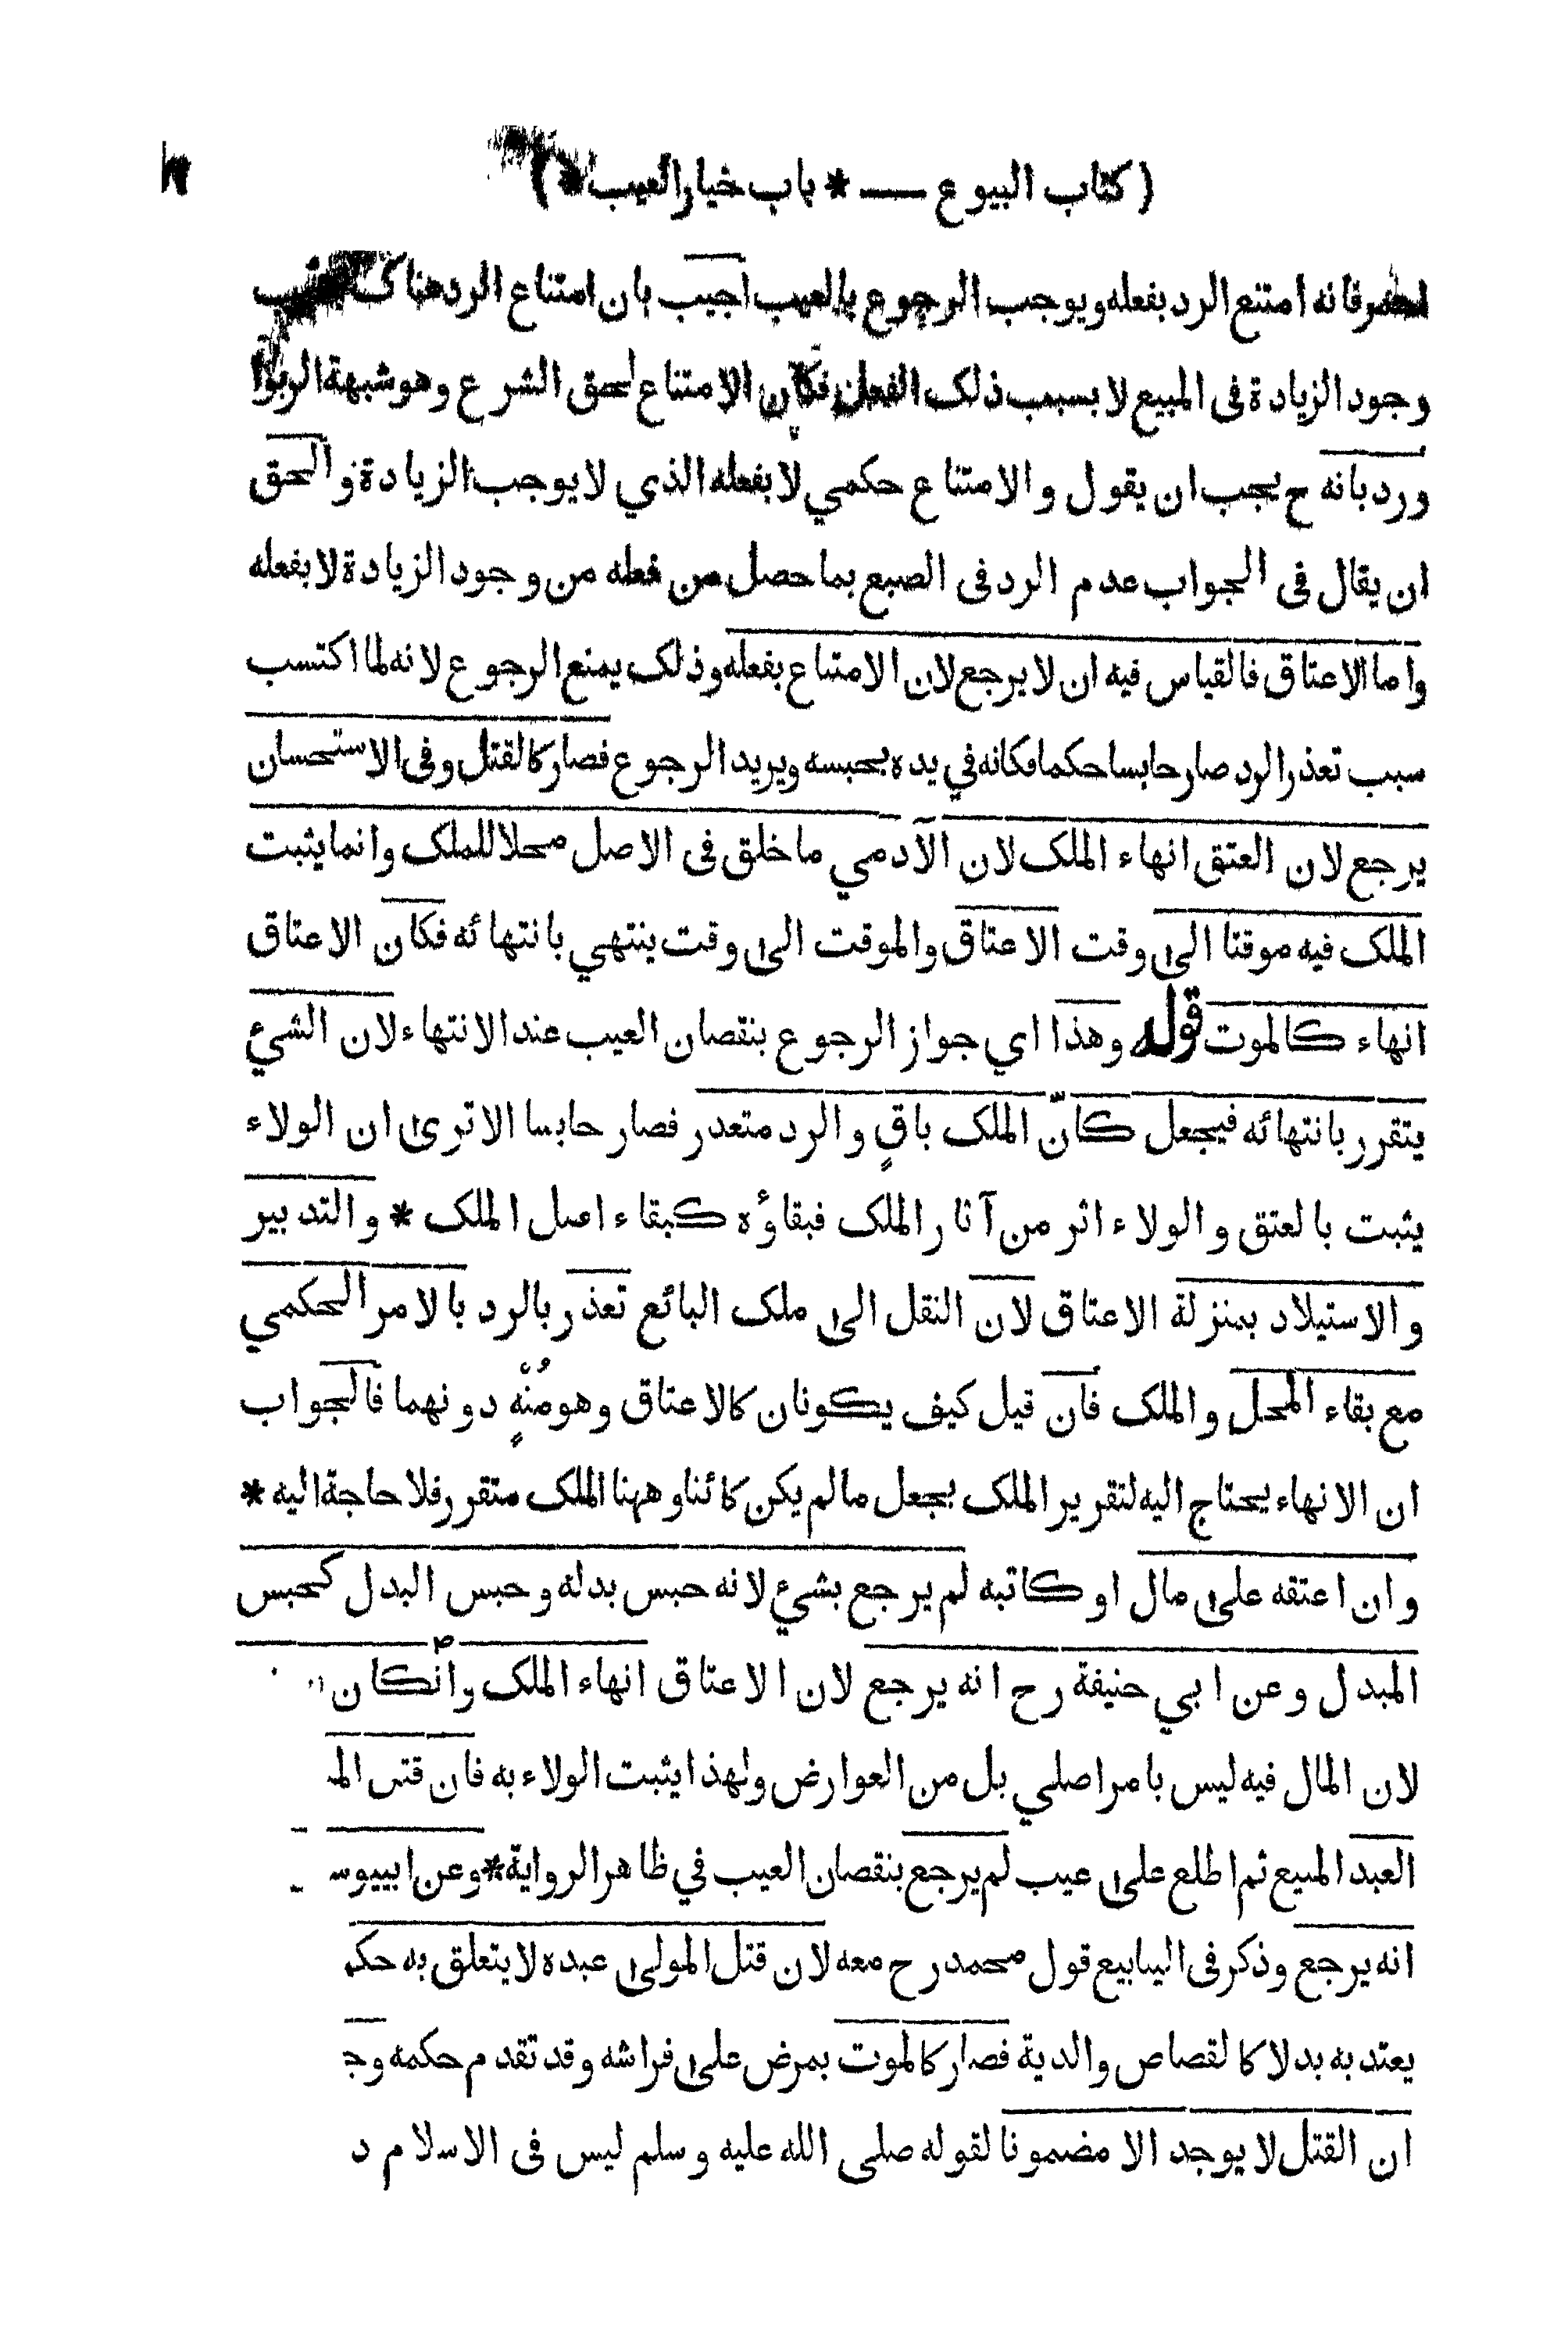 ( كتاب البيوع — * باب خيار العيب * )
احمر فانه امتنع الرد بفعله ويوجب الرجوع بالعيب اجيب بان امتناع الرد هناك
وجود الزيادة فى المبيع لا بسبب ذلك الفعل فكان الامتناع لحق الشرع وهو شبهة الربوا
ورد بانه ح يجب ان يقول والامتناع حكمي لا بفعله الذي لا يوجب الزيادة والحق
ان يقال فى الجواب عدم الرد فى الصبع بما حصل من فعله من وجود الزيادة لا بفعله
واما الاعتاق فالقياس فيه ان لا يرجع لان الامتناع بفعله وذلك يمنع الرجوع لانه لما اكتسب
سبب تعذر الرد صار حابسا حكما فكانه في يده يحبسه ويريد الرجوع فصار كالقتل وفى الاستحسان
يرجع لان العتق انهاء الملك لان الآدمي ما خلق فى الاصل محلا للملك وانما يثبت
الملك فيه موقتا الى وقت الاعتاق والموقت الى وقت ينتهي بانتهائه فكان الاعتاق
انهاء كالموت قوله وهذا اي جواز الرجوع بنقصان العيب عند الانتهاء لان الشيء
يتقرر بانتهائه فيجعل كانّ الملك باقٍ والرد متعدر فصار حابسا الا ترى ان الولاء
يثبت بالعتق والولاء اثر من آثار الملك فبقاؤه كبقاء اصل الملك * والتدبير
والاستيلاد بمنزلة الاعتاق لان النقل الى ملك البائع تعذر بالرد بالامر الحكمي
مع بقاء المحل والملك فان قيل كيف يكونان كالاعتاق وهو مُنْهٍ دونهما فالجواب
ان الانهاء يحتاج اليه لتقرير الملك بجعل مالم يكن كائنا وههنا الملك متقرر فلا حاجة اليه *
وان اعتقه على مال او كاتبه لم يرجع بشيء لانه حبس بدله وحبس البدل كحبس
المبدل وعن ابي حنيفة رح انه يرجع لان الاعتاق انهاء الملك وانكان
لان المال فيه ليس بامر اصلي بل من العوارض ولهذا يثبت الولاء به فان قتل
العبد المبيع ثم اطلع على عيب لم يرجع بنقصان العيب في ظاهر الرواية * وعن
انه يرجع وذكر فى الينابيع قول محمد رح معه لان قتل المولى عبده لا يتعلق به
يعتد به بدلا كالقصاص والدية فصار كالموت بمرض على فراشه وقد تقدم حكمه
ان القتل لا يوجد الا مضمونا لقوله صلى الله عليه وسلم ليس فى الاسلام